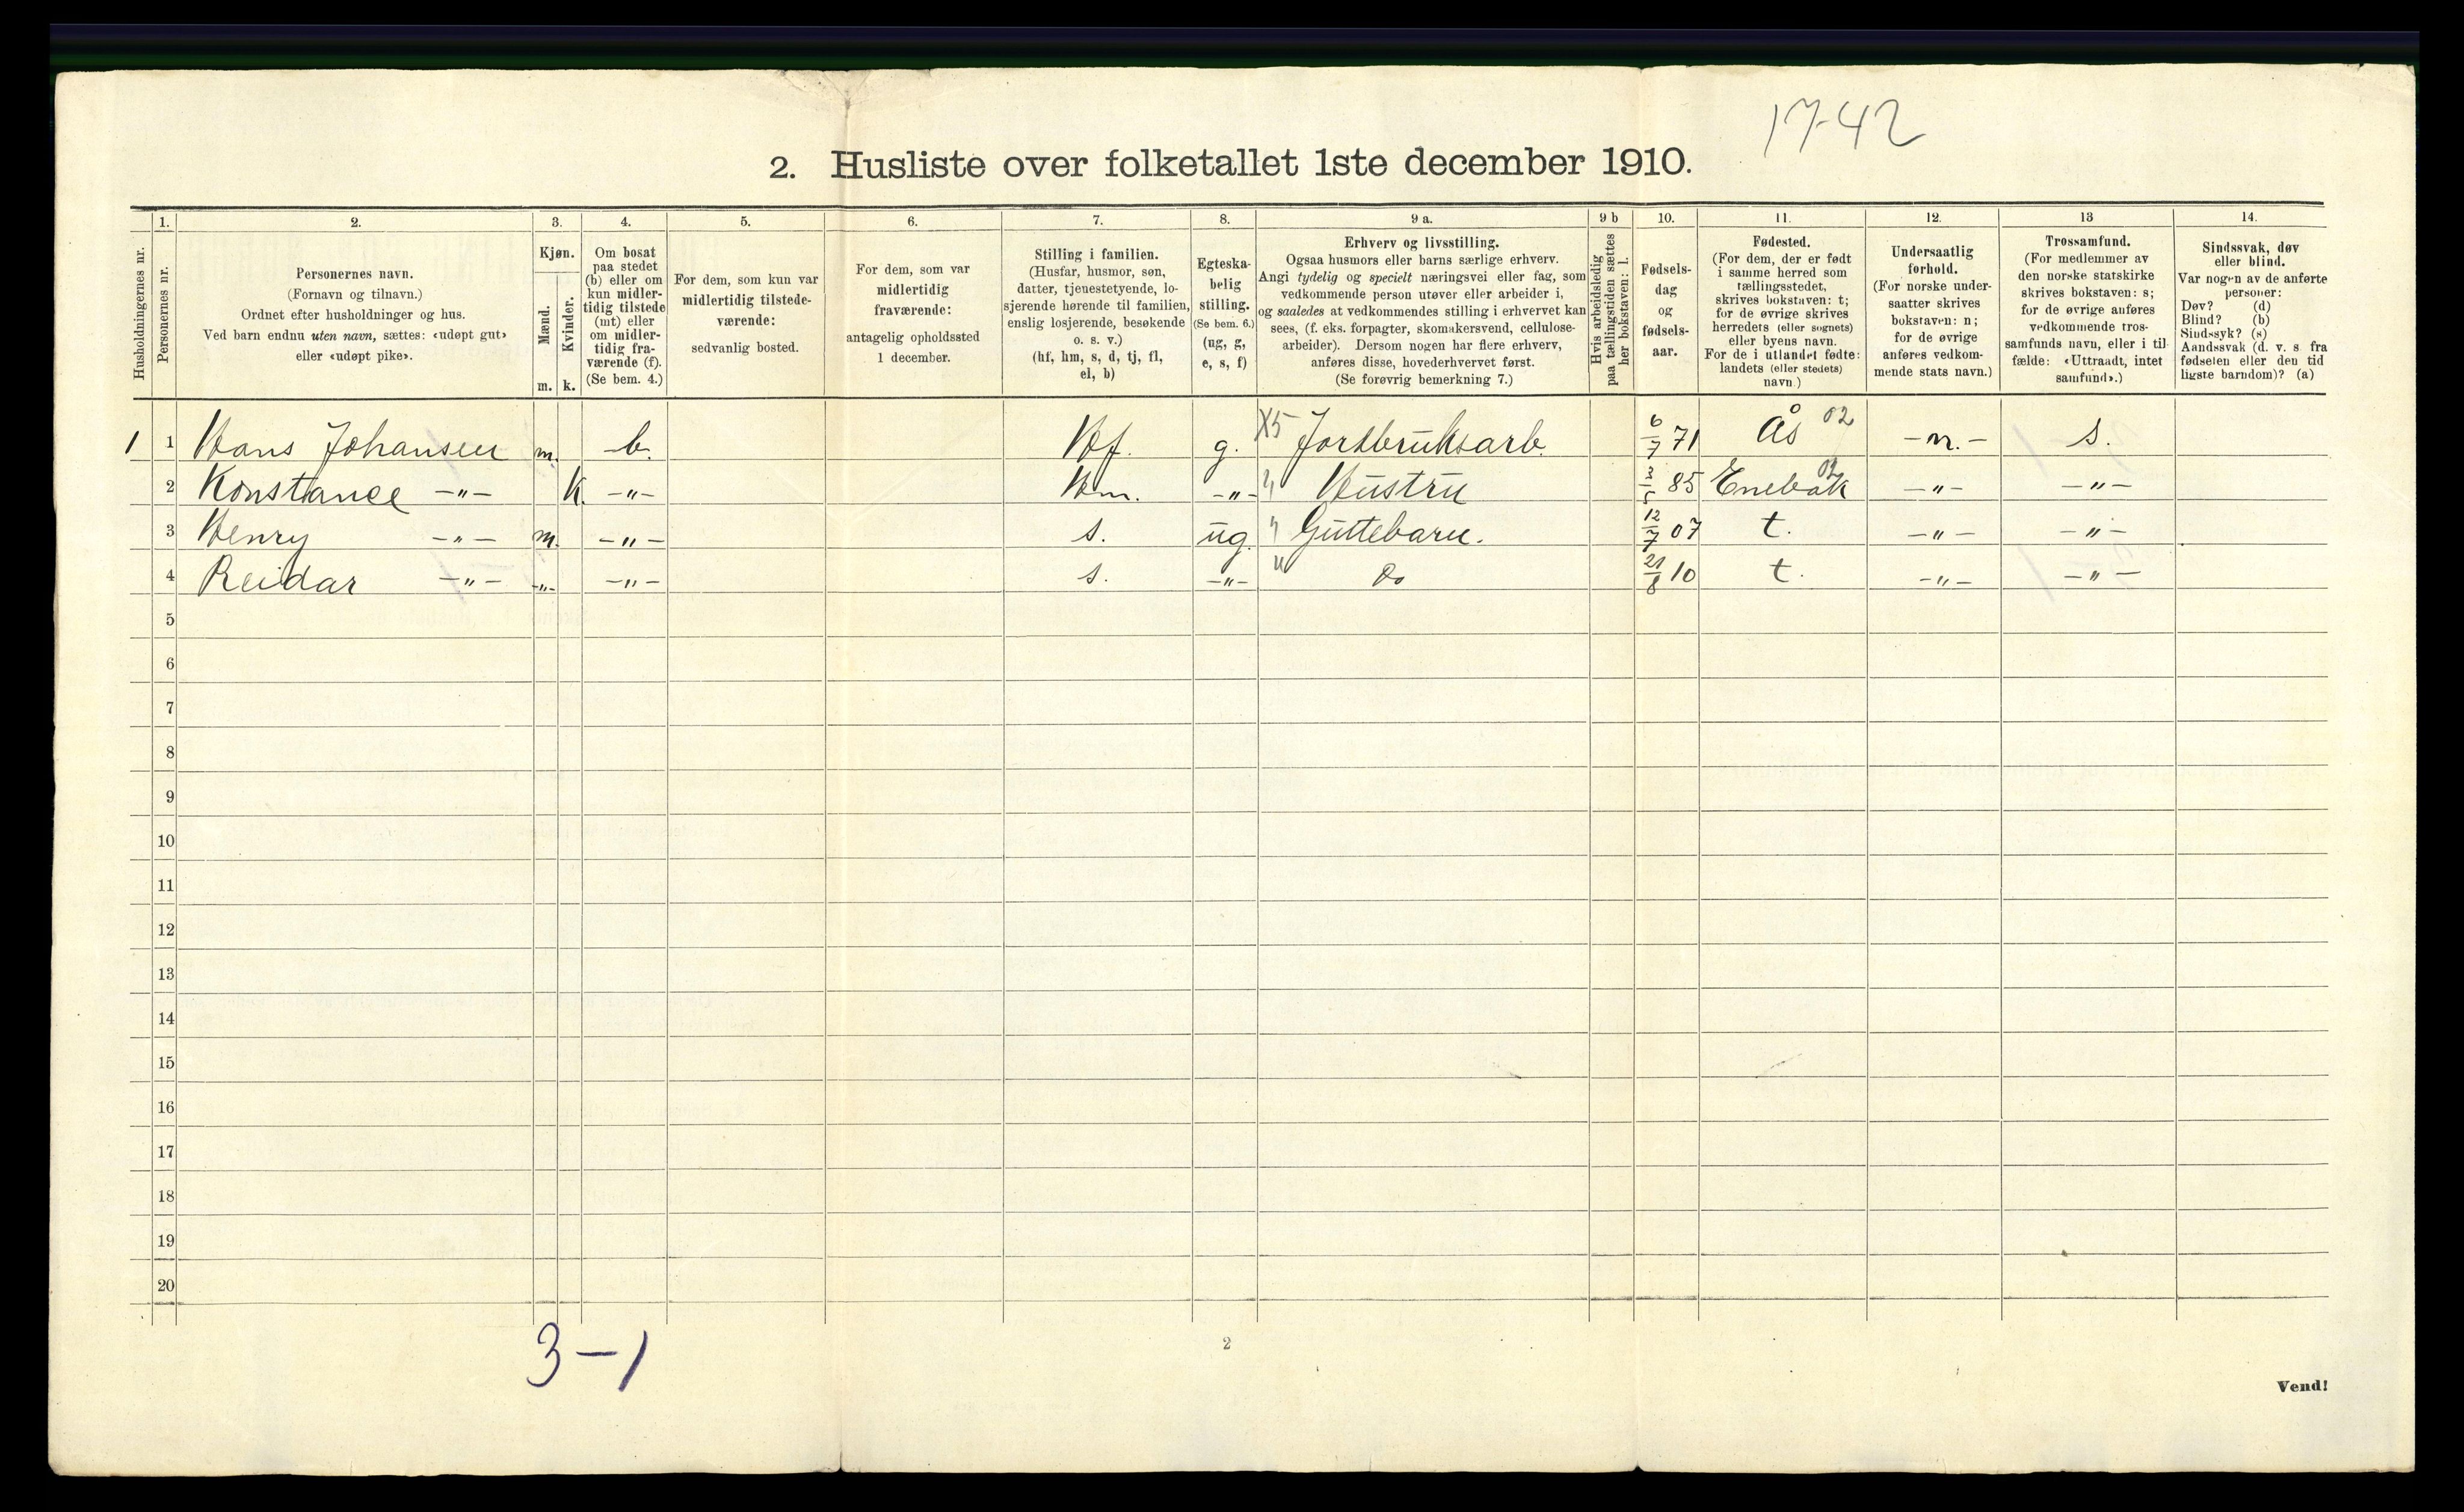 17-42
2. Husliste over folketallet 1ste december 1910.
Husholdningernes nr.
1.
Personernes nr.
2.
Personernes navn.
(Fornavn og tilnavn.)
Ordnet efter husholdninger og hus.
Ved barn endnu uten navn, sættes: «udøpt gut»
eller «udøpt pike».
3.
Kjøn.
Mænd.
m.
Kvinder.
k.
4.
Om bosat
paa stedet
(b) eller om
kun midler-
tidig tilstede
(mt) eller
om midler-
tidig fra-
værende (f).
(Se bem. 4.)
5.
For dem, som kun var
midlertidig tilstede-
værende:
sedvanlig bosted.
6.
For dem, som var
midlertidig
fraværende:
antagelig opholdssted
1 december.
7.
Stilling i familien.
(Husfar, husmor, søn,
datter, tjenestetyende, lo-
sjerende hørende til familien,
enslig losjerende, besøkende
o. s. v.)
(hf, hm, s, d, tj, fl,
el, b)
8.
Egteska-
belig
stilling.
(Se bem. 6.)
(ug, g,
e, s, f)
9 a.
Erhverv og livsstilling.
Ogsaa husmors eller barns særlige erhverv.
Angi tydelig og specielt næringsvei eller fag, som
vedkommende person utøver eller arbeider i,
og saaledes at vedkommendes stilling i erhvervet kan
sees, (f. eks. forpagter, skomakersvend, cellulose-
arbeider). Dersom nogen har flere erhverv,
anføres disse, hovederhvervet først.
(Se forøvrig bemerkning 7.)
9 b
Hvis arbeidsledig
paa tællingstiden sættes
her bokstaven: l.
10.
Fødsels-
dag
og
fødsels-
aar.
11.
Fødested.
(For dem, der er født
i samme herred som
tællingsstedet,
skrives bokstaven: t;
for de øvrige skrives
herredets (eller sognets)
eller byens navn.
For de i utlandet fødte:
landets (eller stedets)
navn.)
12.
Undersaatlig
forhold.
(For norske under-
saatter skrives
bokstaven: n;
for de øvrige
anføres vedkom-
mende stats navn.)
13
Trossamfund.
(For medlemmer av
den norske statskirke
skrives bokstaven: s;
for de øvrige anføres
vedkommende tros-
samfunds navn, eller i til-
fælde: «Uttraadt, intet
samfund».)
14.
Sindssvak, døv
eller blind.
Var nogen av de anførte
personer:
Døv? (d)
Blind? (b)
Sindssyk? (s)
Aandssvak (d. v. s. fra
fødselen eller den tid
ligste barndom)? (a)
1 1 Hans Johansen m. b. Hf. g. X5 Jordbruksarb. 6/7 71 Ås 02 -n.- s.
2 Konstance -"- K. -"- Hm. -"- " Hustru 3/5 85 Enebak 02 -"- -"-
3 Henry -"- m. -"- s. ug. " Guttebarn. 12/7 07 t. -"- -"-
4 Reidar -"- -"- -"- s. -"- " Do 21/8 10 t. -"- -"-
5
6
7
8
9
10
11
12
13
14
15
16
17
18
19
20
3-1
2
Vend!